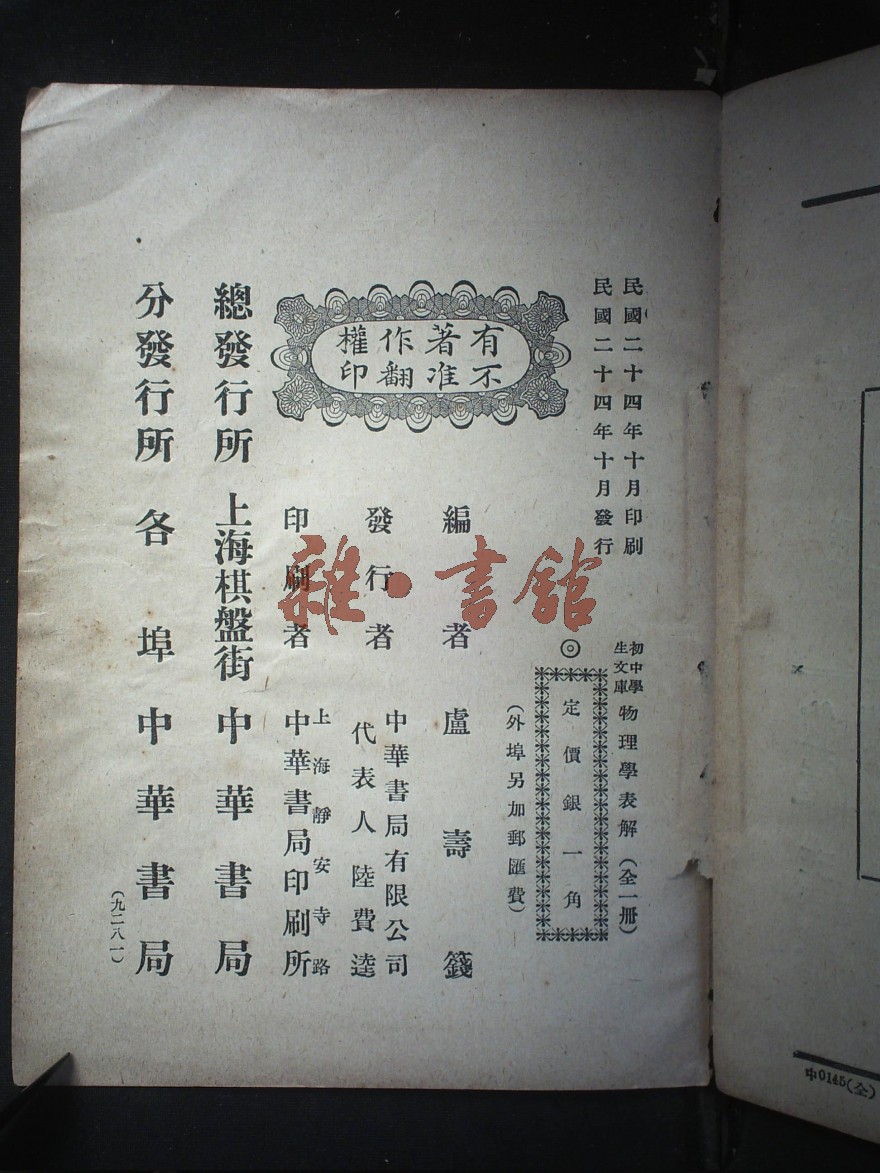 民國二十四年十月印刷
民國二十四年十月發行
初中學生文庫 物理學表解 (全一冊)
◎定價銀一角
(外埠另加郵匯費)
有著作權
不准翻印
編者 盧壽籛
發行者 中華書局有限公司
代表人 陸費逵
印刷者 上海靜安寺路
中華書局印刷所
總發行所 上海棋盤街 中華書局
分發行所 各埠 中華書局
(九二八一)
雜·書館
中0145(全)